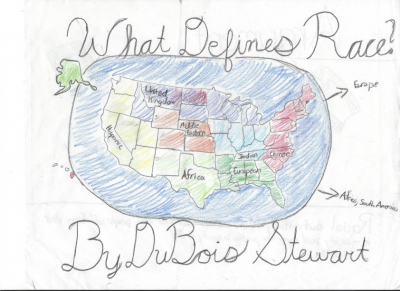 What Defines Race?
Europe
United Kingdom
Middle Eastern
Hispanic
Indian
Chinese
European
Africa
Africa, South America
By DuBois Stewart